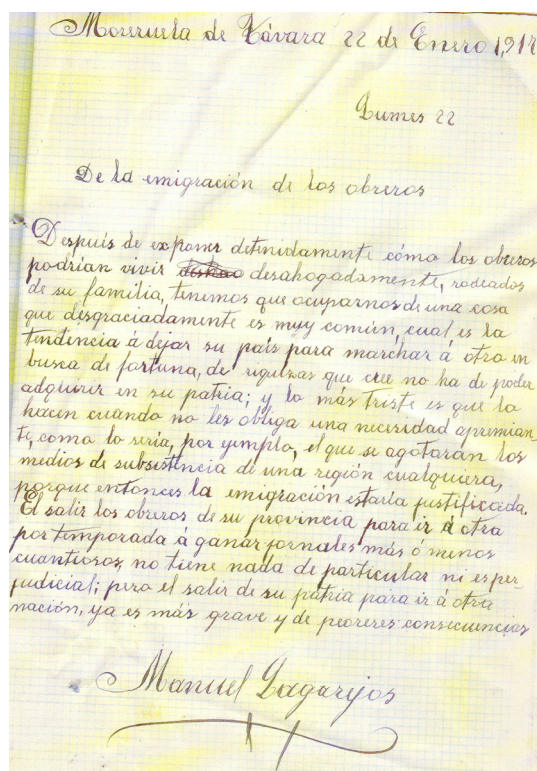 Moreruela de Távara 22 de Enero 1,917
Lunes 22
De la emigración de los obreros
Después de exponer detinidamente cómo los obreros
podrían vivir desahogadamente, rodeados
de su familia, tenemos que ocuparnos de una cosa
que desgraciadamente es muy común, cual es la
tendencia á dejar su país para marchar á otro en
busca de fortuna, de riquezas que cree no ha de poder
adquirir en su patria; y lo más triste es que lo
hacen cuando no les obliga una necesidad apremian-
te, como lo sería, por ejemplo, el que se agotarán los
medios de subsistencia de una región cualquiera,
porque entonces la emigración estaría justificada.
El salir los obreros de su provincia para ir á otra
por temporada á ganar jornales más ó menos
cuantiosos, no tiene nada de particular ni es per
judicial; pero el salir de su patria para ir á otra
nación, ya es más grave y de peoreres consecuencias
Manuel Lagarejos